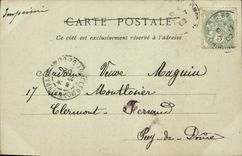 Imprimé
CARTE POSTALE
Ce côté est exclusivement réservé à l'adresse
Madame Veuve Maguin
17 Montlosier
Clermont-Ferrand
Puy-de-Dôme